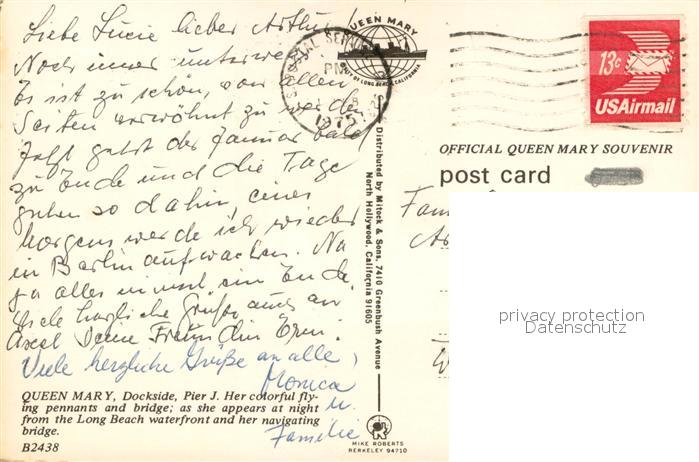 Liebe Lucie lieber Arthur!
Noch immer unterwegs
Es ist zu schön, von allen
Seiten verwöhnt zu werden
Jetzt geht der Januar bald
zu Ende und die Tage
gehen so dahin, eines
Morgens werde ich wieder
in Berlin aufwachen. Na
ja alles nimmt ein Ende.
Viele herzliche Grüße auch an
Axel Deine Freundin Erni.
Viele herzliche Grüße an alle,
Monica
u.
Familie
QUEEN MARY, Dockside, Pier J. Her colorful fly-
ing pennants and bridge; as she appears at night
from the Long Beach waterfront and her navigating
bridge.
B2438
QUEEN MARY
CITY OF LONG BEACH, CALIFORNIA
PM
1975
Distributed by Mitock & Sons, 7410 Greenbush Avenue
North Hollywood, California 91605
MIKE ROBERTS
BERKELEY 94710
13c
USAirmail
OFFICIAL QUEEN MARY SOUVENIR
post card
Fam
privacy protection
Datenschutz